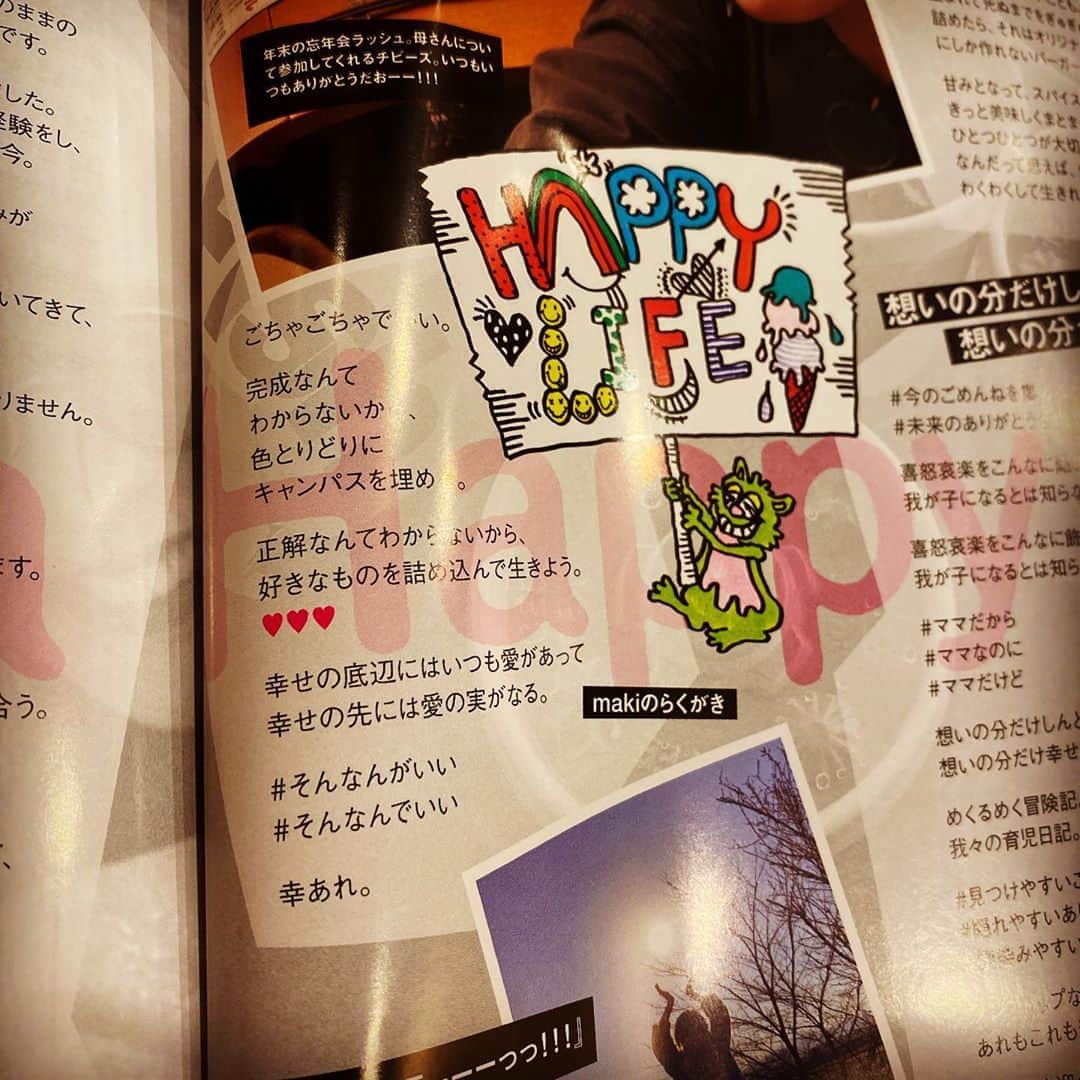 のままの
です。
した。
経験をし、
今。
みが
いてきて、
りません。
ます。
合う。
年末の忘年会ラッシュ。母さんについ
て参加してくれるチビーズ。いつもい
つもありがとうだおーー!!!
HAPPY
LIFE
ごちゃごちゃで い。
完成なんて
わからないか 、
色とりどりに
キャンパスを埋め 。
正解なんてわからないから、
好きなものを詰め込んで生きよう。
♥♥♥
幸せの底辺にはいつも愛があって
幸せの先には愛の実がなる。
makiのらくがき
#そんなんがいい
#そんなんでいい
幸あれ。
Happy
ーーっっ!!!』
詰めたら、それはオリジナ
にしか作れないバーガー
甘みとなって、スパイス
きっと美味しくまとま
ひとつひとつが大切
なんだって思えば、
わくわくして生きれ
想いの分だけし
想いの分
#今のごめんねを
#未来のありがとう
喜怒哀楽をこんなに
我が子になるとは知ら
喜怒哀楽をこんなに
我が子になるとは知ら
#ママだから
#ママなのに
#ママだけど
想いの分だけしんど
想いの分だけ幸せ
めくるめく冒険記。
我々の育児日記。
#見つけやすいこ
#隠れやすいあ
みやすい
プな
あれもこれも